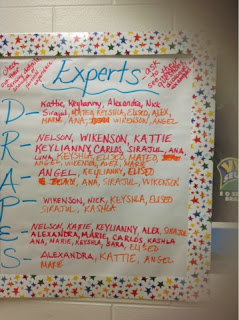 Experts
D- Kattie, Keylianny, Alexandra, Nick
Sirajul, MATEO, KEYSHLA, ELISEO, ALEX,
MARIE, ANA, WIKENSON, ANGEL
R- NELSON, WIKENSON, KATTIE
KEYLIANNY, CARLOS, SIRAJUL, ANA,
LUNA, KEYSHLA, ELISEO, MATEO,
ANGEL, WIKENSON, ALEX, MARIE
A- ANGEL, KEYLIANNY, ELISEO
ANA, SIRAJUL, WIKENSON
P- WIKENSON, NICK, KEYSHLA, ELISEO
SIRAJUL, KASHLA
E- NELSON, KATIE, KEYLIANNY, ALEX, SIRAJUL
ALEXANDRA, MARIE, CARLOS, KASHLA
ANA, MARIE, KEYSHLA, SARA, ELISEO
S- ALEXANDRA, KATTIE, ANGEL
MARIE